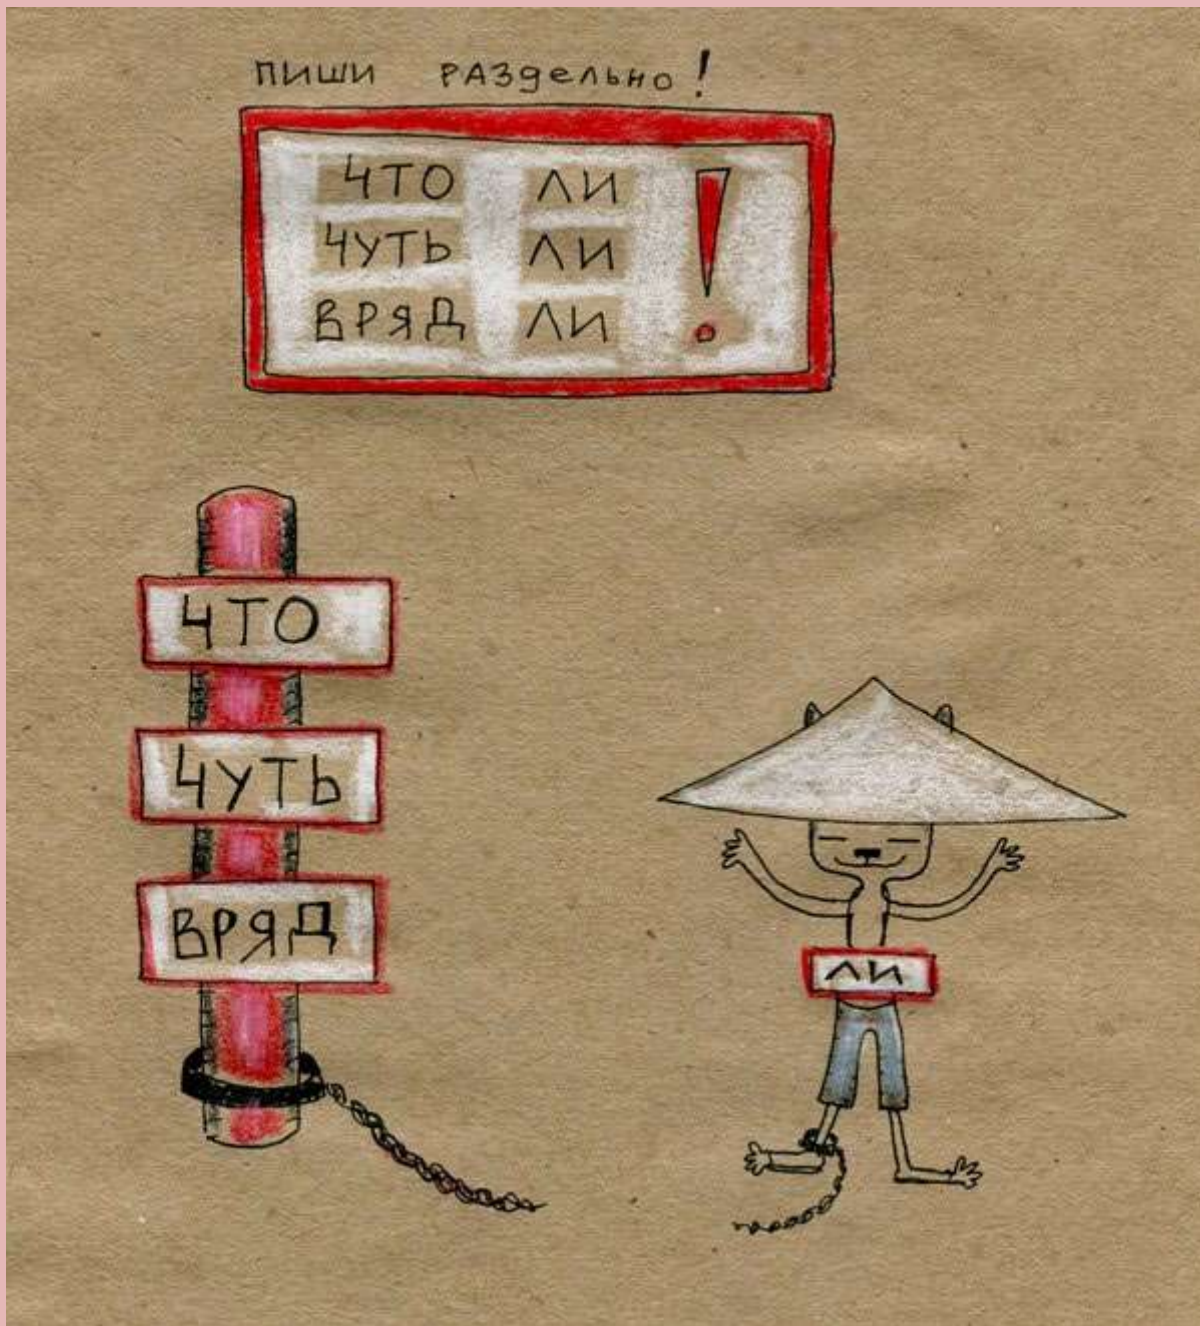 пиши раздельно!
что ли
чуть ли
вряд ли
!
что
чуть
вряд
ли